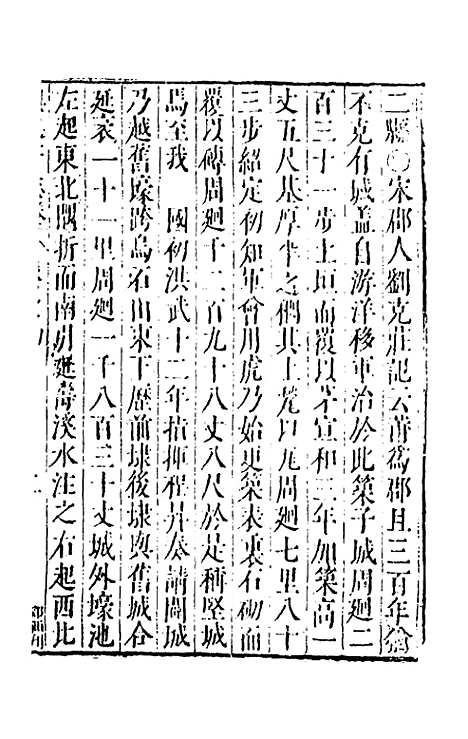 二縣○宋郡人劉克莊記云莆為郡且三百年猶
不克有城蓋自游洋移軍治於此築子城周廻二
百三十一步土垣而覆以茅宣和三年加築高一
丈五尺基厚半之 其上 以 周廻七里八十
三步紹定初知軍曾用虎乃始更築表裏石砌而
覆以磚周廻千二百九十八丈八尺於是稱堅城
焉至我 國初洪武十二年指揮程昇奏請闢城
乃越舊壕跨烏石山東下歷前埭後埭與舊城合
延袤一十一里周廻一千八百三十丈城外壕池
左起東北隅折而南引延壽溪水注之右起西北